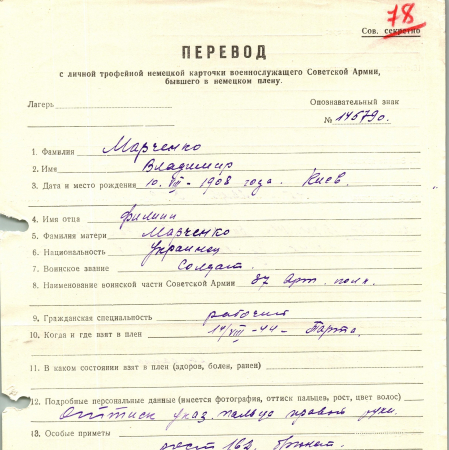 78
Сов. секретно
ПЕРЕВОД
с личной трофейной немецкой карточки военнослужащего Советской Армии,
бывшего в немецком плену.
Лагерь
Опознавательный знак
№ 145790.
1. Фамилия Марченко
2. Имя Владимир
3. Дата и место рождения 10. VIII - 1908 года. Киев.
4. Имя отца Филипп
5. Фамилия матери Мазченко
6. Национальность Украинец
7. Воинское звание Солдат.
8. Наименование воинской части Советской Армии 87 арт. полк.
9. Гражданская специальность рабочий
10. Когда и где взят в плен 14/VIII - 44 -
11. В каком состоянии взят в плен (здоров, болен, ранен)
12. Подробные персональные данные (имеется фотография, оттиск пальцев, рост, цвет волос)
Оттиск указ. пальца правой руки.
13. Особые приметы
рост 162.